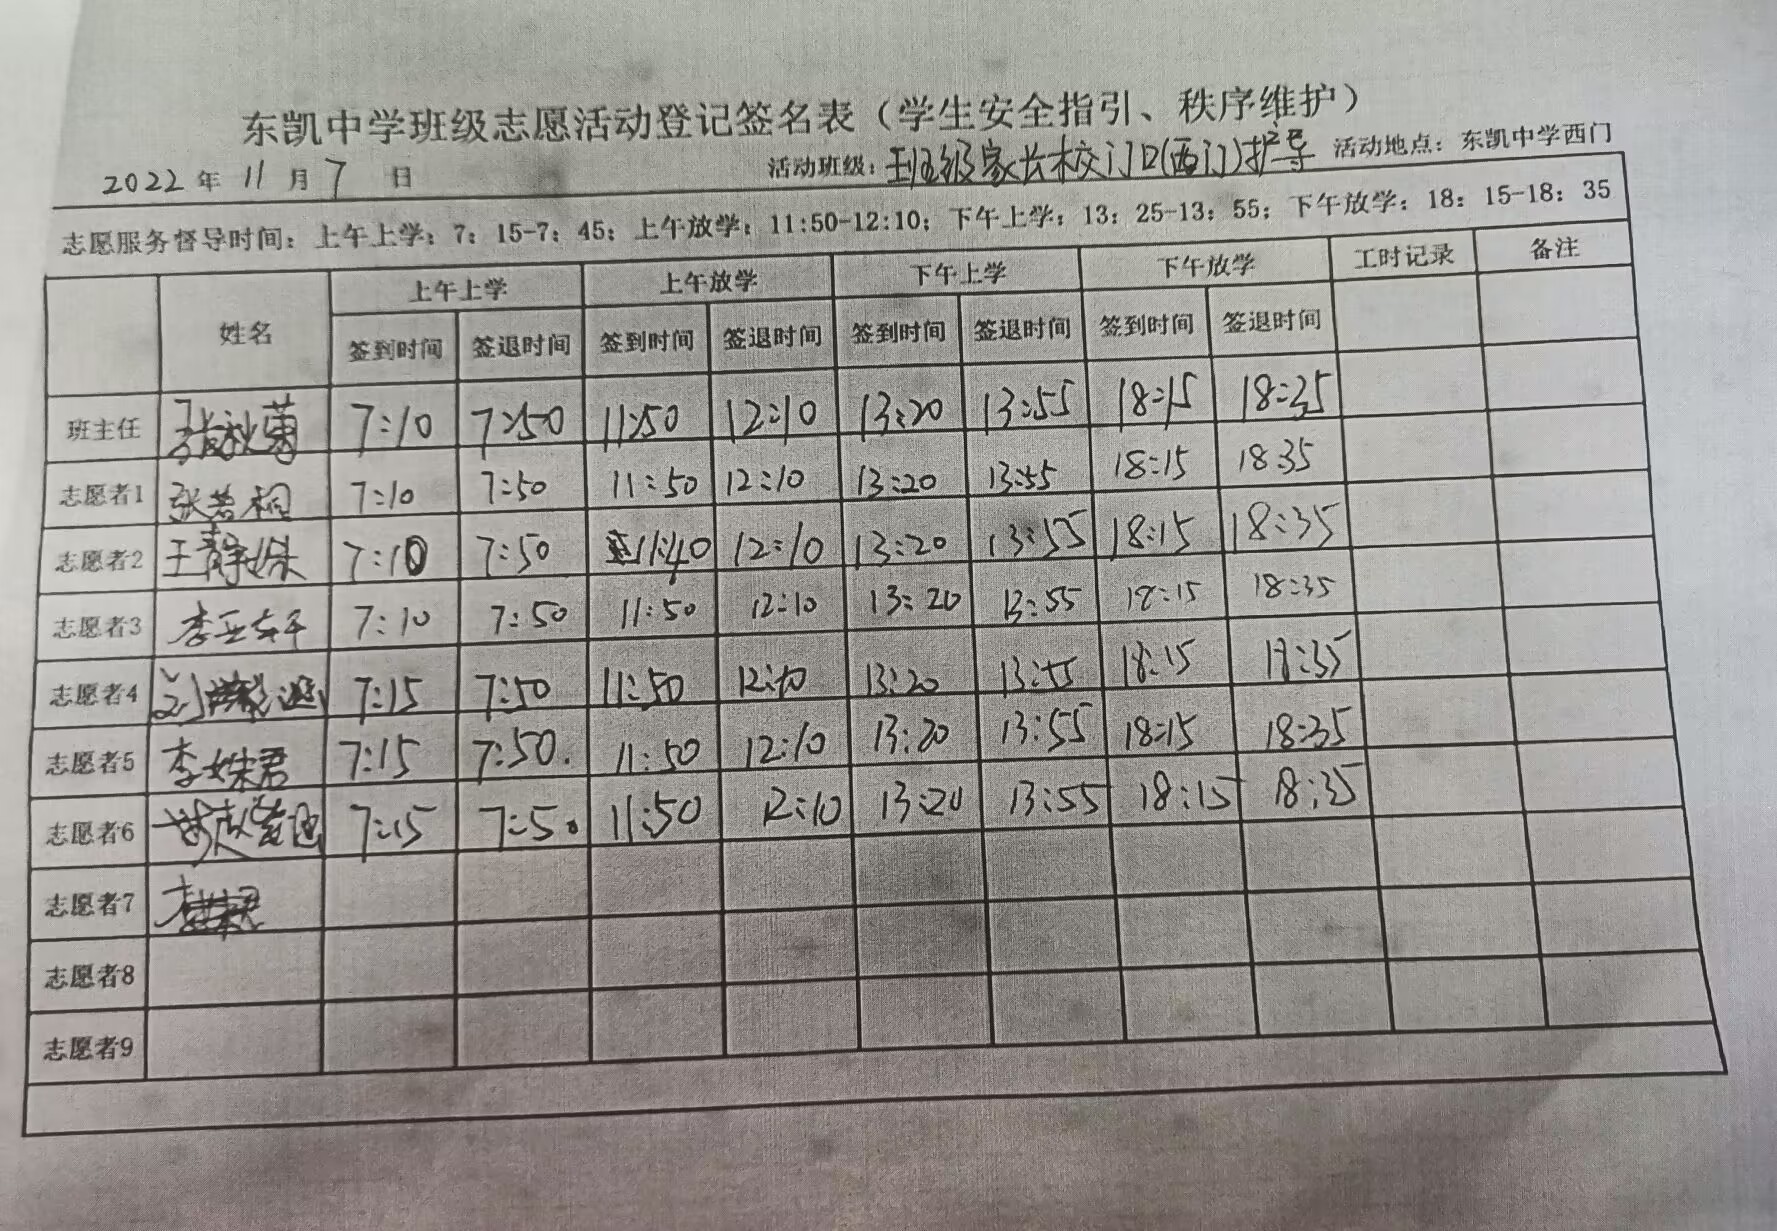 东凯中学班级志愿活动登记签名表（学生安全指引、秩序维护）
2022年 11月 7日 活动班级：班级家长校门口(西门)护导 活动地点：东凯中学西门
志愿服务督导时间：上午上学：7：15-7：45；上午放学：11:50-12:10；下午上学：13：25-13：55；下午放学：18：15-18：35
姓名 上午上学 上午放学 下午上学 下午放学 工时记录 备注
签到时间 签退时间 签到时间 签退时间 签到时间 签退时间 签到时间 签退时间
班主任 张秋菊 7:10 7:50 11:50 12:10 13:20 13:55 18:15 18:35
志愿者1 张若桐 7:10 7:50 11:50 12:10 13:20 13:55 18:15 18:35
志愿者2 王静姝 7:10 7:50 11:40 12:10 13:20 13:55 18:15 18:35
志愿者3 李亚轩 7:10 7:50 11:50 12:10 13:20 13:55 18:15 18:35
志愿者4 7:15 7:50 11:50 12:10 13:20 13:55 18:15 18:35
志愿者5 李姝君 7:15 7:50. 11:50 12:10 13:20 13:55 18:15 18:35
志愿者6 7:15 7:50 11:50 12:10 13:20 13:55 18:15 18:35
志愿者7
志愿者8
志愿者9